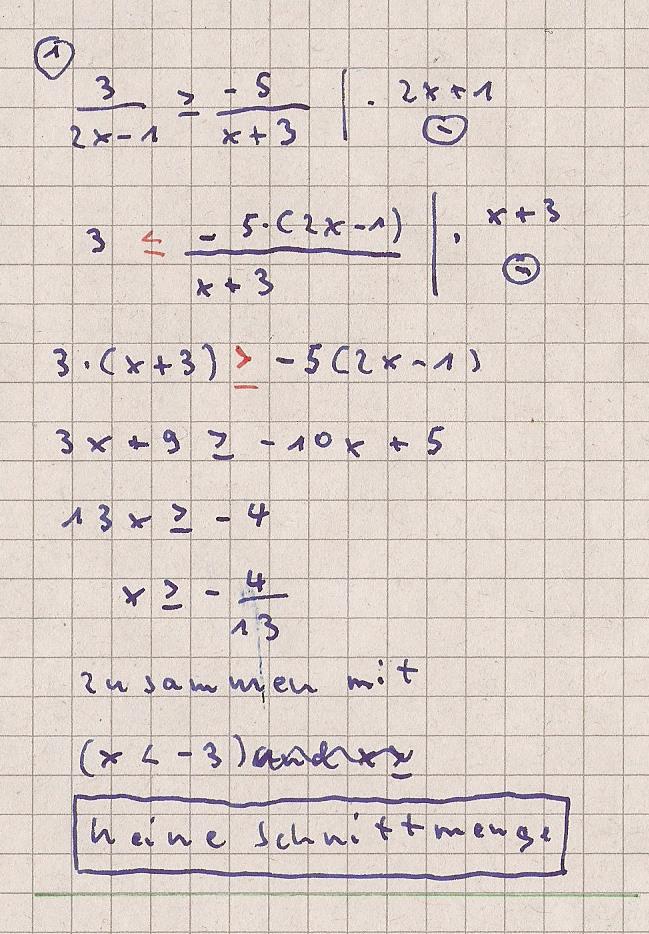 ①
3/(2x-1) ≥ -5/(x+3) | · 2x+1 ⊖
3 ≤ -5·(2x-1)/(x+3) | · x+3 ⊖
3·(x+3) ≥ -5(2x-1)
3x+9 ≥ -10x+5
13x ≥ -4
x ≥ -4/13
zusammen mit
(x < -3)
keine Schnittmenge